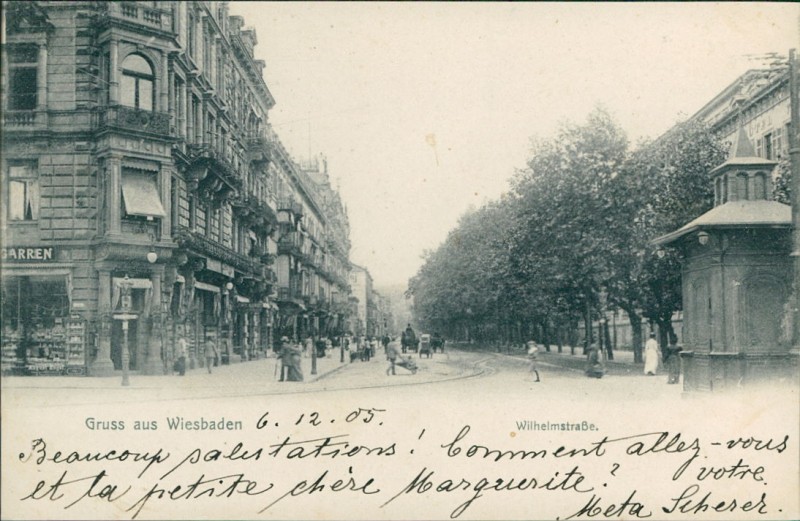 GARREN
Gruss aus Wiesbaden 6. 12. 05. Wilhelmstraße.
Beaucoup salestations! Comment allez-vous
et ta petite chère Marguerite? votre
Meta Scherer.